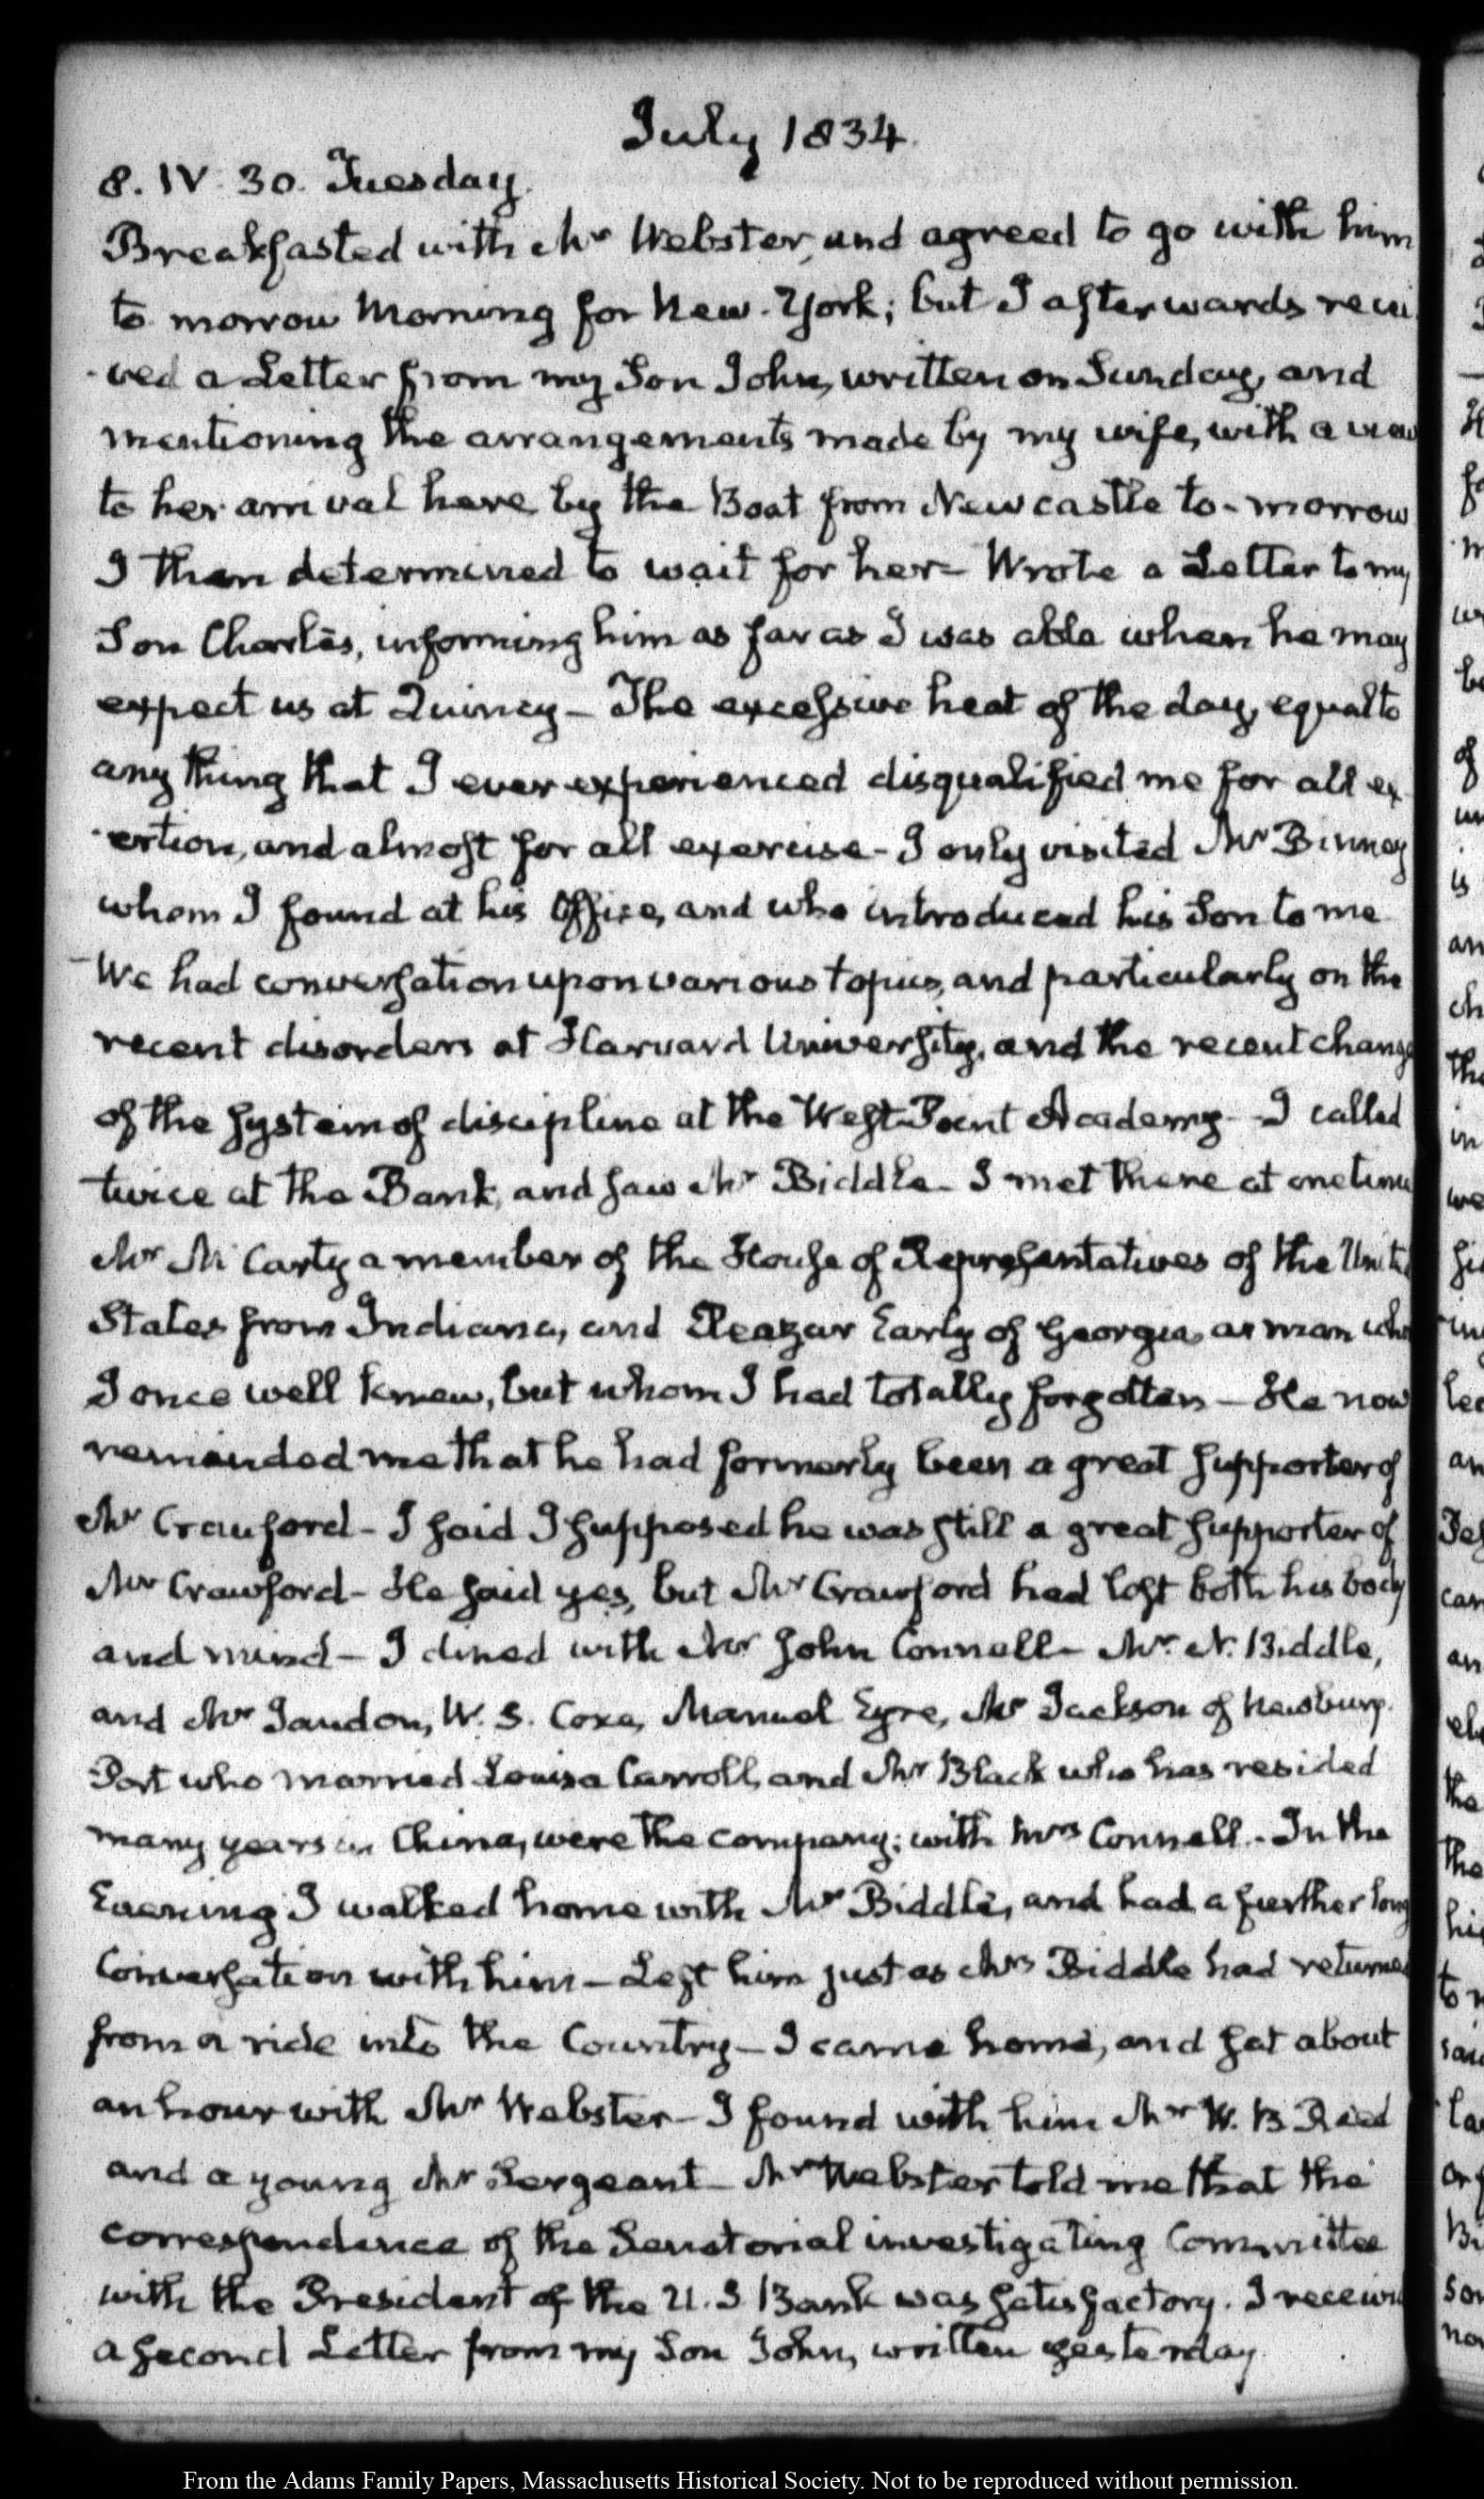 July 1834.
8. IV. 30. Tuesday.
Breakfasted with Mr Webster, and agreed to go with him
to morrow Morning for New-York; but I afterwards recei
-ved a Letter from my Son John, written on Sunday, and
mentioning the arrangements made by my wife, with a view
to her arrival here by the Boat from Newcastle to-morrow
I then determined to wait for her- Wrote a Letter to my
Son Charles, informing him as far as I was able when he may
expect us at Quincy- The excessive heat of the day, equal to
any thing that I ever experienced disqualified me for all ex
-ertion, and almost for all exercise- I only visited Mr Binney
whom I found at his Office, and who introduced his Son to me
-We had conversation upon various topics, and particularly on the
recent disorders at Harvard University, and the recent change
of the system of discipline at the West-Point Academy- I called
twice at the Bank, and saw Mr Biddle- I met there at one time
Mr McCarty a member of the House of Representatives of the United
States from Indiana, and Eleazar Early of Georgia, a man who
I once well knew, but whom I had totally forgotten- He now
reminded me that he had formerly been a great supporter of
Mr Crawford- I said I supposed he was still a great supporter of
Mr Crawford- He said yes, but Mr Crawford had lost both his body
and mind- I dined with Mr John Connell- Mr. N. Biddle,
and Mr Jaudon, W. S. Coxe, Manuel Eyre, Mr Jackson of Newbury
Port who married Louisa Carroll, and Mr Black who has resided
many years in China, were the company; with Mrs Connell.- In the
Evening I walked home with Mr Biddle, and had a further long
Conversation with him- Left him just as Mrs Biddle had returned
from a ride into the Country- I came home, and sat about
an hour with Mr Webster- I found with him Mr W. B Reed
and a young Mr Sergeant- Mr Webster told me that the
correspondence of the Senatorial investigating Committee
with the President of the U.S Bank was satisfactory. I received
a second Letter from my Son John, written yesterday.
From the Adams Family Papers, Massachusetts Historical Society. Not to be reproduced without permission.